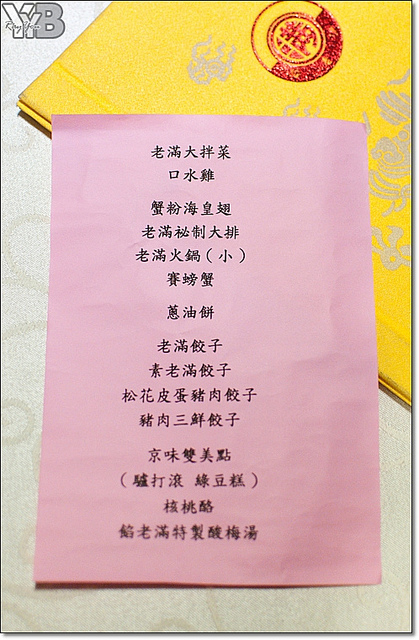 YYB
老滿大拌菜
口水雞
蟹粉海皇翅
老滿祕制大排
老滿火鍋(小)
賽螃蟹
蔥油餅
老滿餃子
素老滿餃子
松花皮蛋豬肉餃子
豬肉三鮮餃子
京味雙美點
(驢打滾 綠豆糕)
核桃酪
餡老滿特製酸梅湯